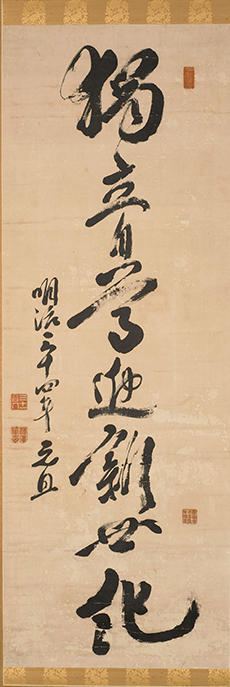 獨立自尊迎新世紀
明治三十四年元旦